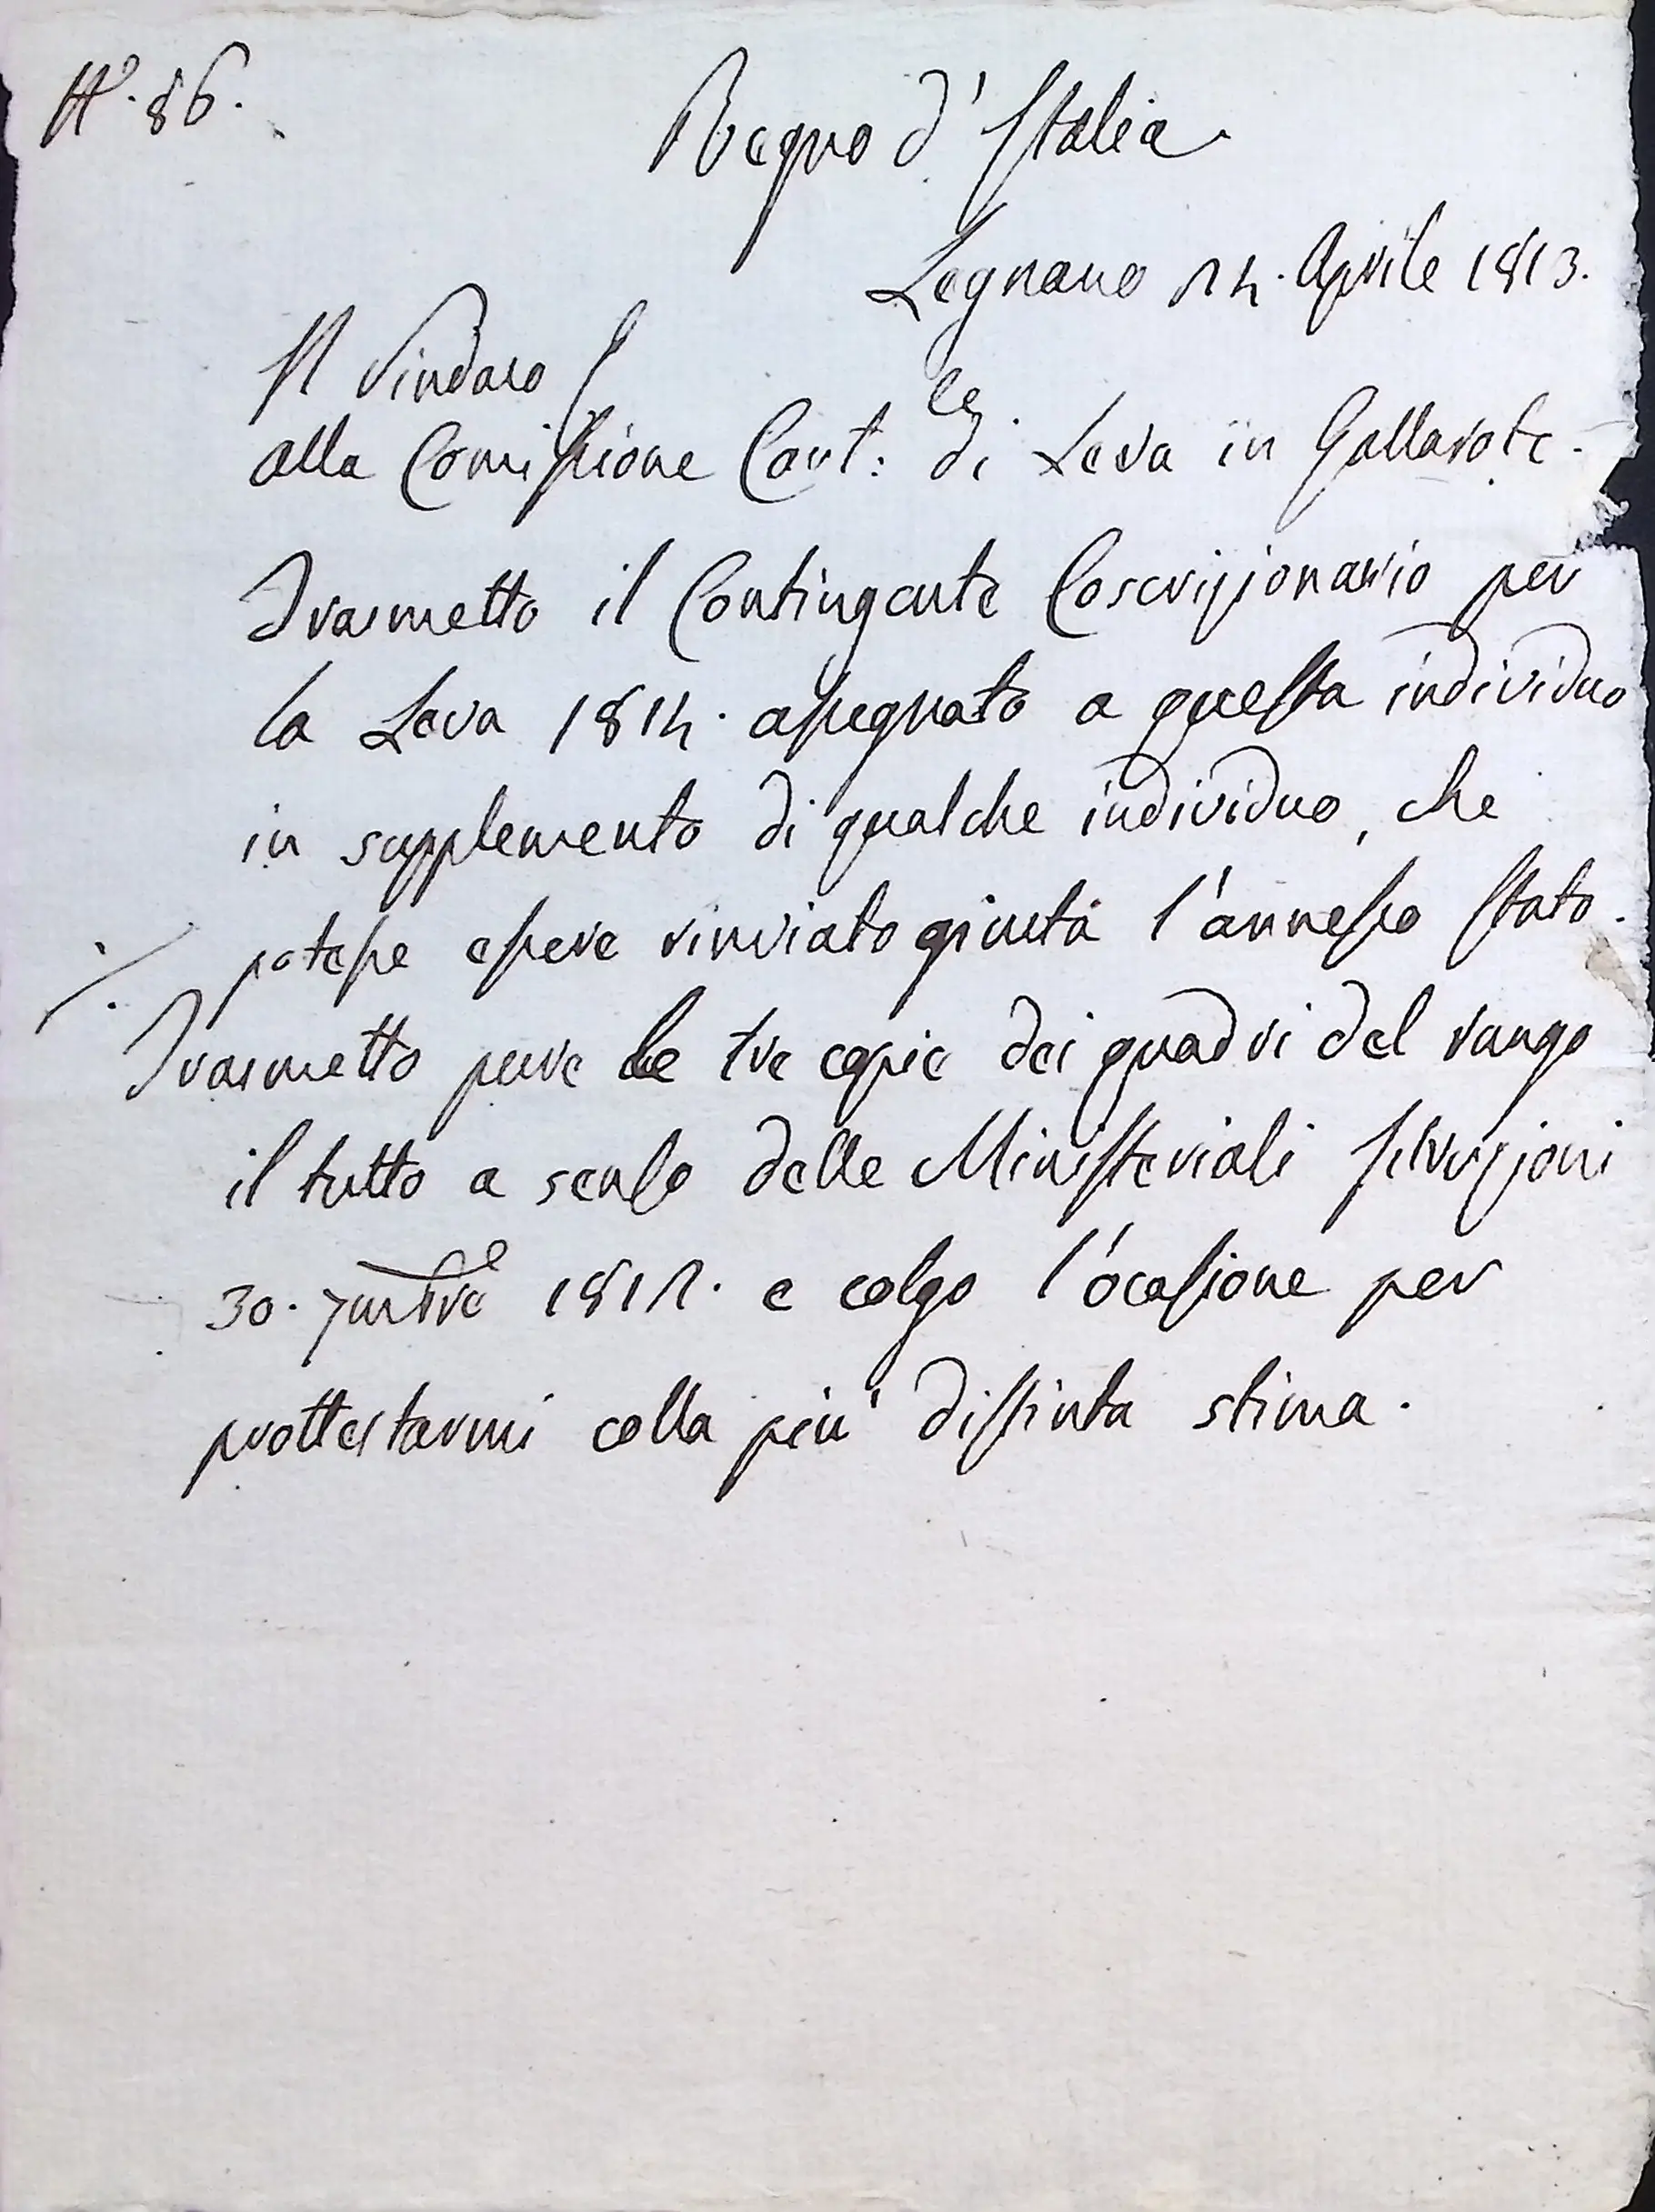 N.° 86.
Regno d'Italia
Legnano 24. Aprile 1813.
Il Sindaco
alla Comissione Cant:le di Leva in Gallarate.
Trasmetto il Contingente Coscrizionario per
la Leva 1814. assegnato a questa individuo
in supplemento di qualche individuo, che
potesse essere rinviato giusta l'annesso stato.
Trasmetto pure le tre copie dei quadri del rango
il tutto a senso delle Ministeriali Istruzioni
30. 7mbre 1811. e colgo l'ocasione per
prottestarmi colla più distinta stima.